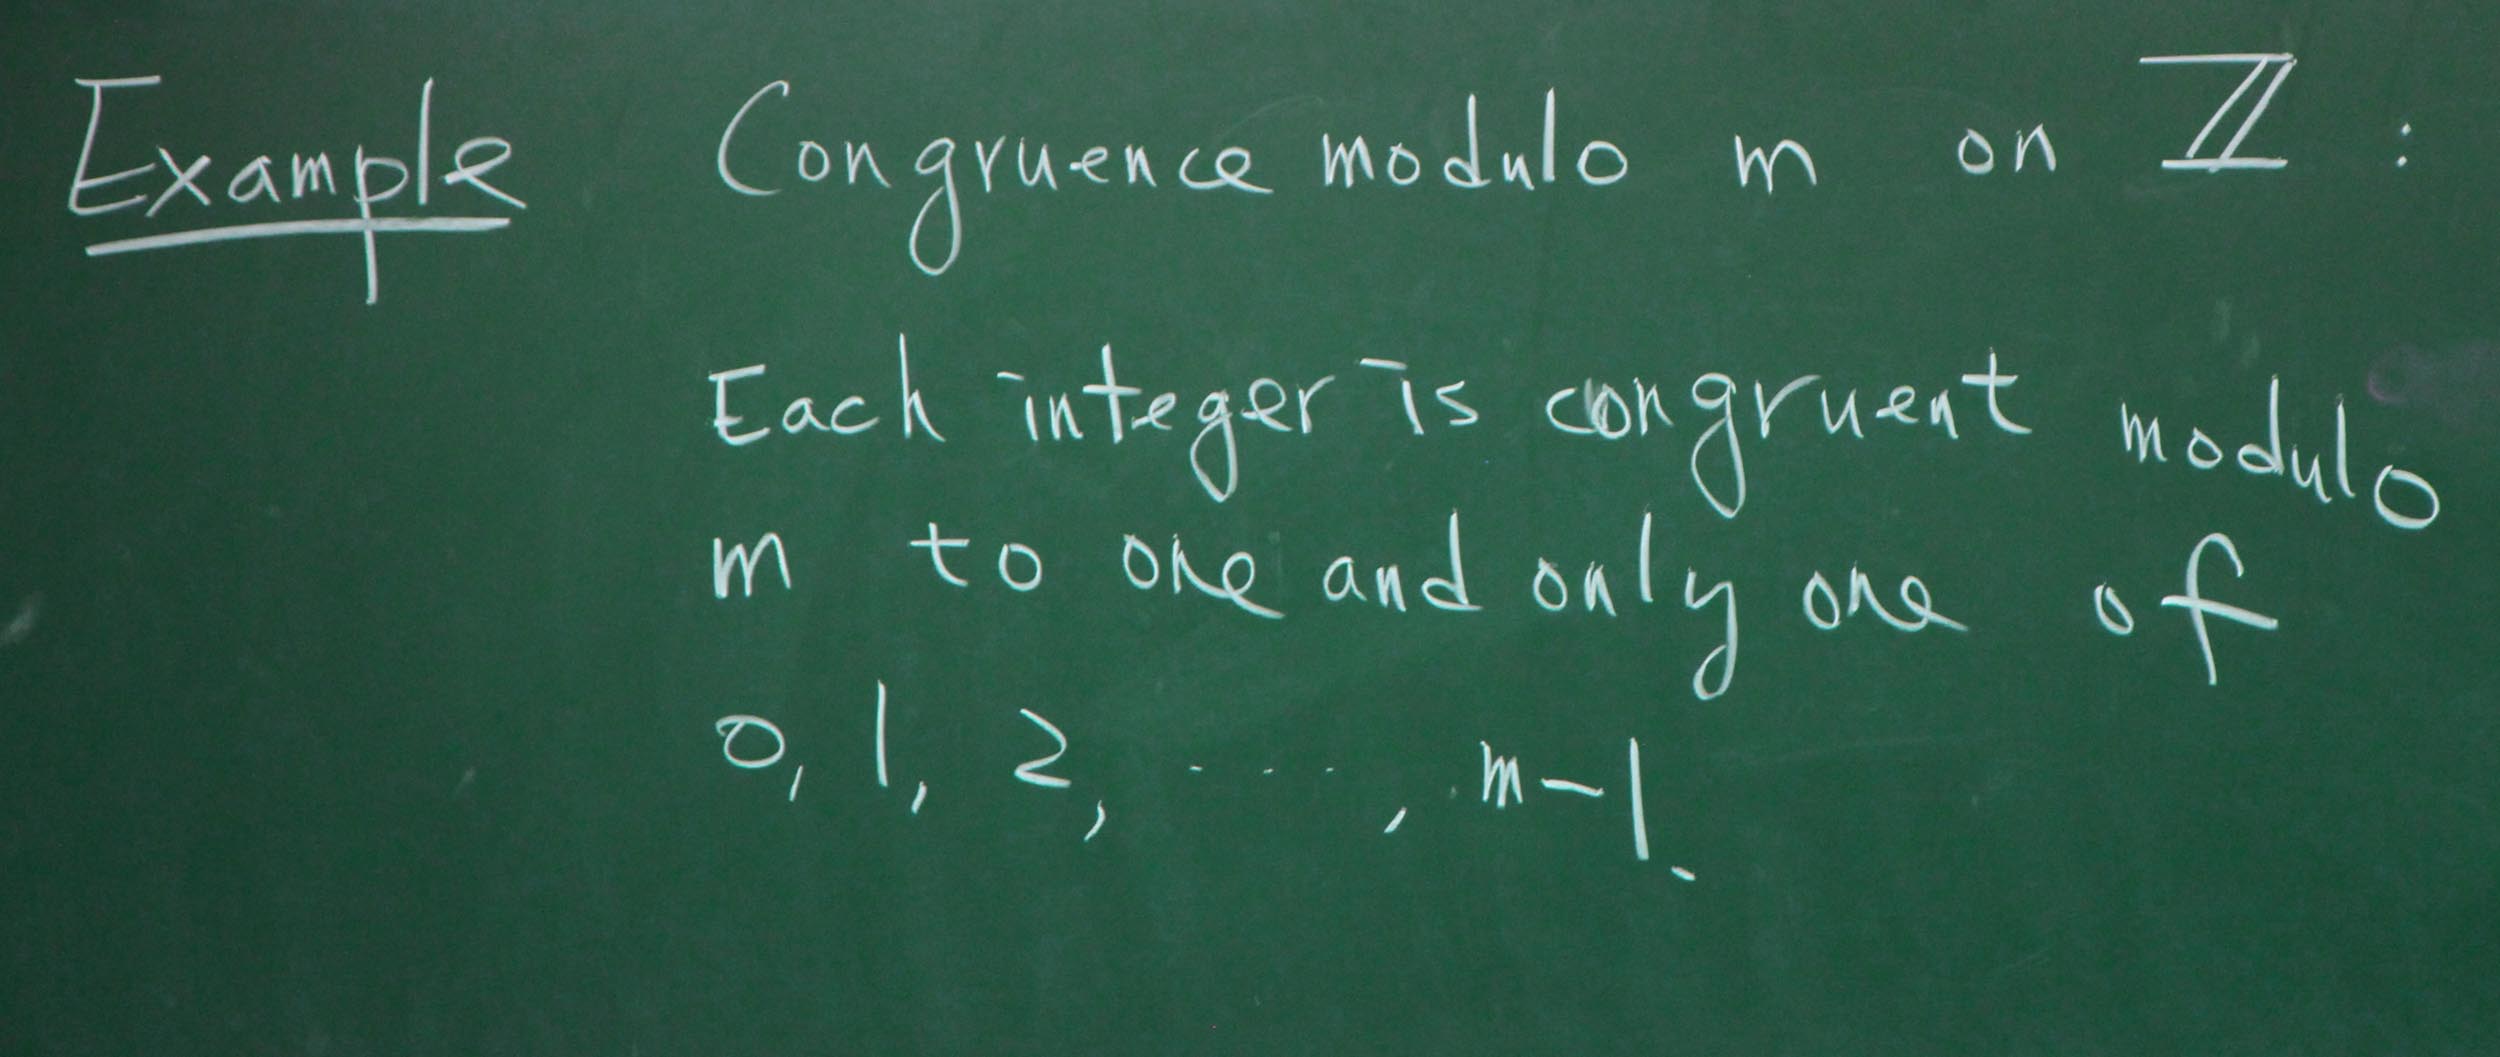 Example Congruence modulo m on ℤ :
Each integer is congruent modulo
m to one and only one of
0, 1, 2, ..., m-1.